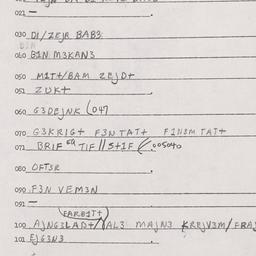 021 —
030 DI/ZEJR BAB3
060 B1N M3KAN3
050 M1T+/BAM ZEJD+
051 ZUK+
060 G3DEJNK (047
070 G3KRIG+ F3N TAT+ F1N3M TAT+
071 BRIF EA TIF // S+IF (005040
080 OFT3R
090 F3N VEM3N
091 —
FAREITT
100 AJNG3LAD+/ AL3 MAJN3 KREJV3M/FRAJ
101 EJG3N3